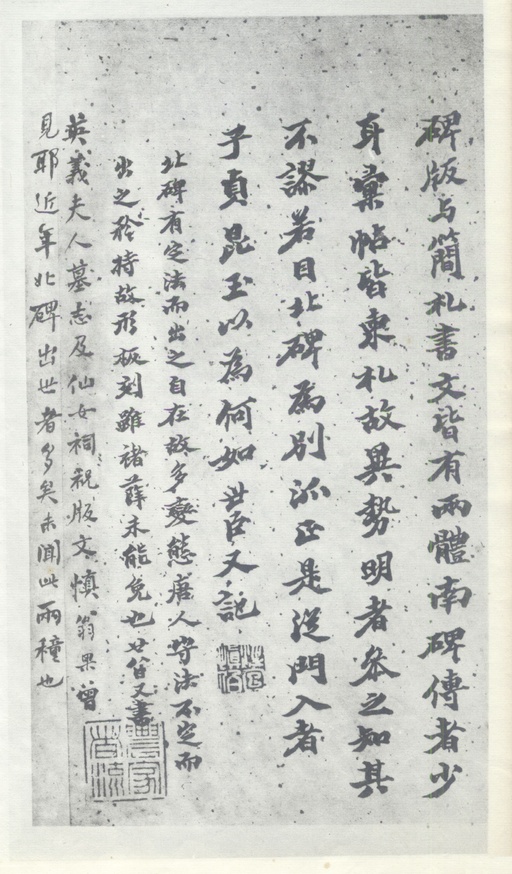 碑版与簡札書文皆有兩體南碑傳者少
耳彙帖皆柬札故異勢明者參之知其
不謬若目北碑為別派正是從門入者
子貞昆玉以為何如 世臣又記
北碑有定法而出之自在故多變態唐人 法不定而
出之矜持故形板刻雖諸薛未能免也 世臣又書
英義夫人墓志及仙女祠祝版文慎翁果曾
見耶近年北碑出世者多矣未聞此兩種也
慎伯